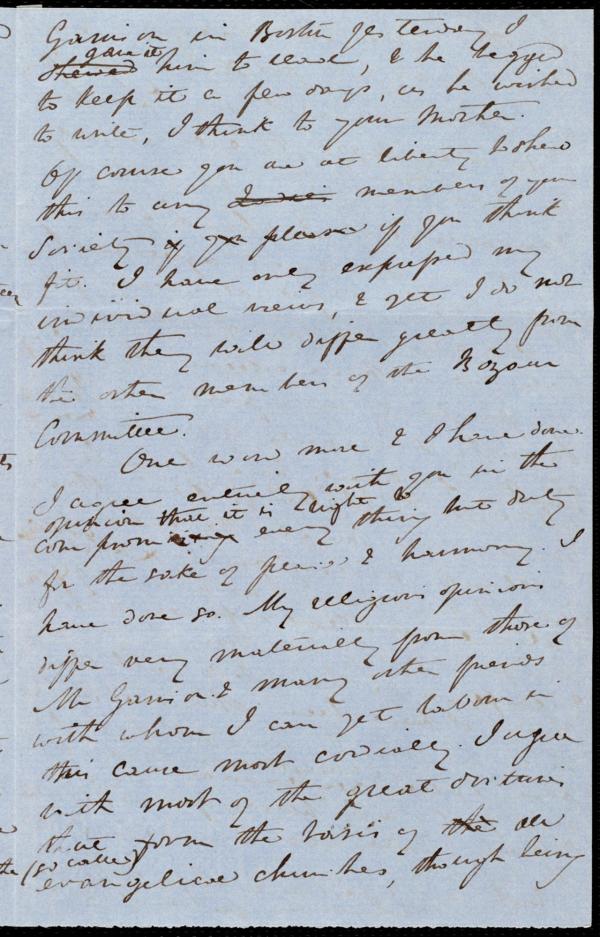 Garrison in Boston yesterday I
gave it
shewed him to read, & he begged
to keep it a few days, as he wished
to write, I think to your Mother.
Of course you are at liberty to shew
this to any members of your
Society if you please if you think
fit. I have only expressed my
individual views, & yet I do not
think they will differ greatly from
the other members of the Bazaar
Committee.
One word more & I have done.
I agree entirely with you in the
opinion that it is right to
compromising every thing but duty
for the sake of peace & harmony. I
have done so. My religious opinions
differ very materially from those of
Mr Garrison & many other friends
with whom I can yet labour in
this cause most cordially. I agree
with most of the great doctrines
that form the basis of the all
(so called)
evangelical churches, though being